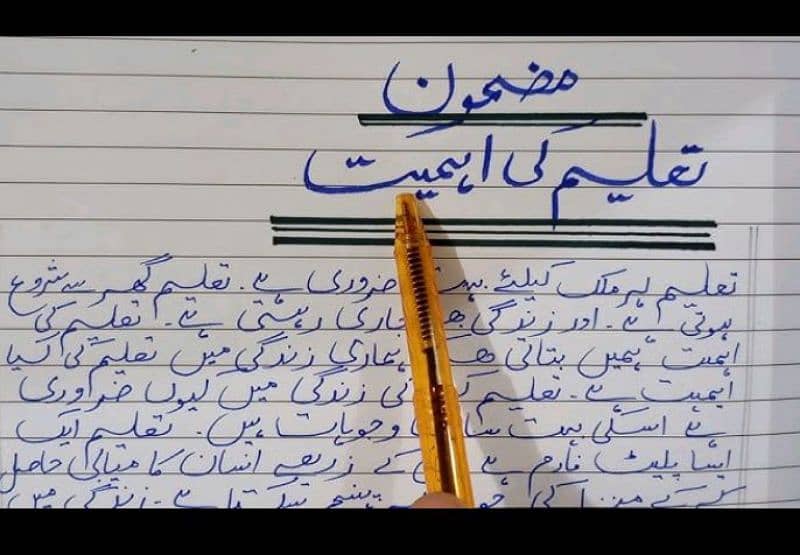 مضمون
تعلیم کی اہمیت
تعلیم ہر ملک کیلئے ضروری ہے۔ تعلیم گھر سے شروع
ہوتی ہے۔ اور زندگی جاری رہتی ہے۔ تعلیم کی
اہمیت ہمیں بتاتی ہماری زندگی میں تعلیم کی کیا
اہمیت ہے۔ تعلیم کی زندگی میں کیوں ضروری
ہے اسکی بہت وجوہات ہیں۔ تعلیم ایک
ایسا پلیٹ فارم ہے کے ذریعے انسان کامیابی حاصل
کر کے زندگی میں